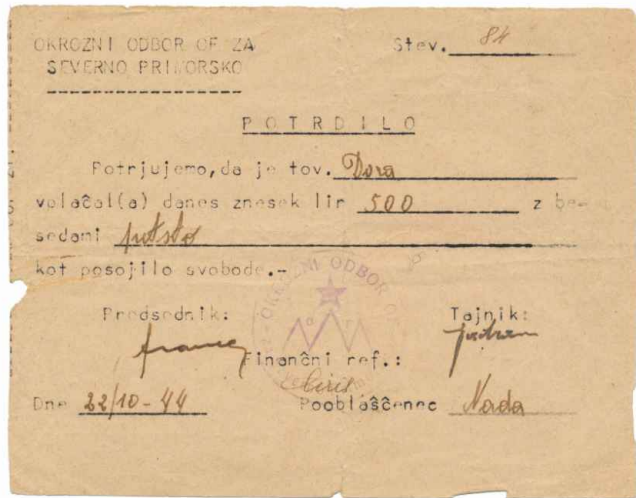 OKROZNI ODBOR OF ZA Stev. 84
SEVERNO PRIMORSKO
POTRDILO
Potrjujemo, da je tov. Dora
vplačal(a) danes znesek lir 500 z be-
sedami petsto
kot posojilo svobode.-
OKROZNI ODBOR OF
Predsednik: Tajnik:
Franc
Finančni ref.:
Ciril
Dne 22/10-44 Pooblaščenec Nada